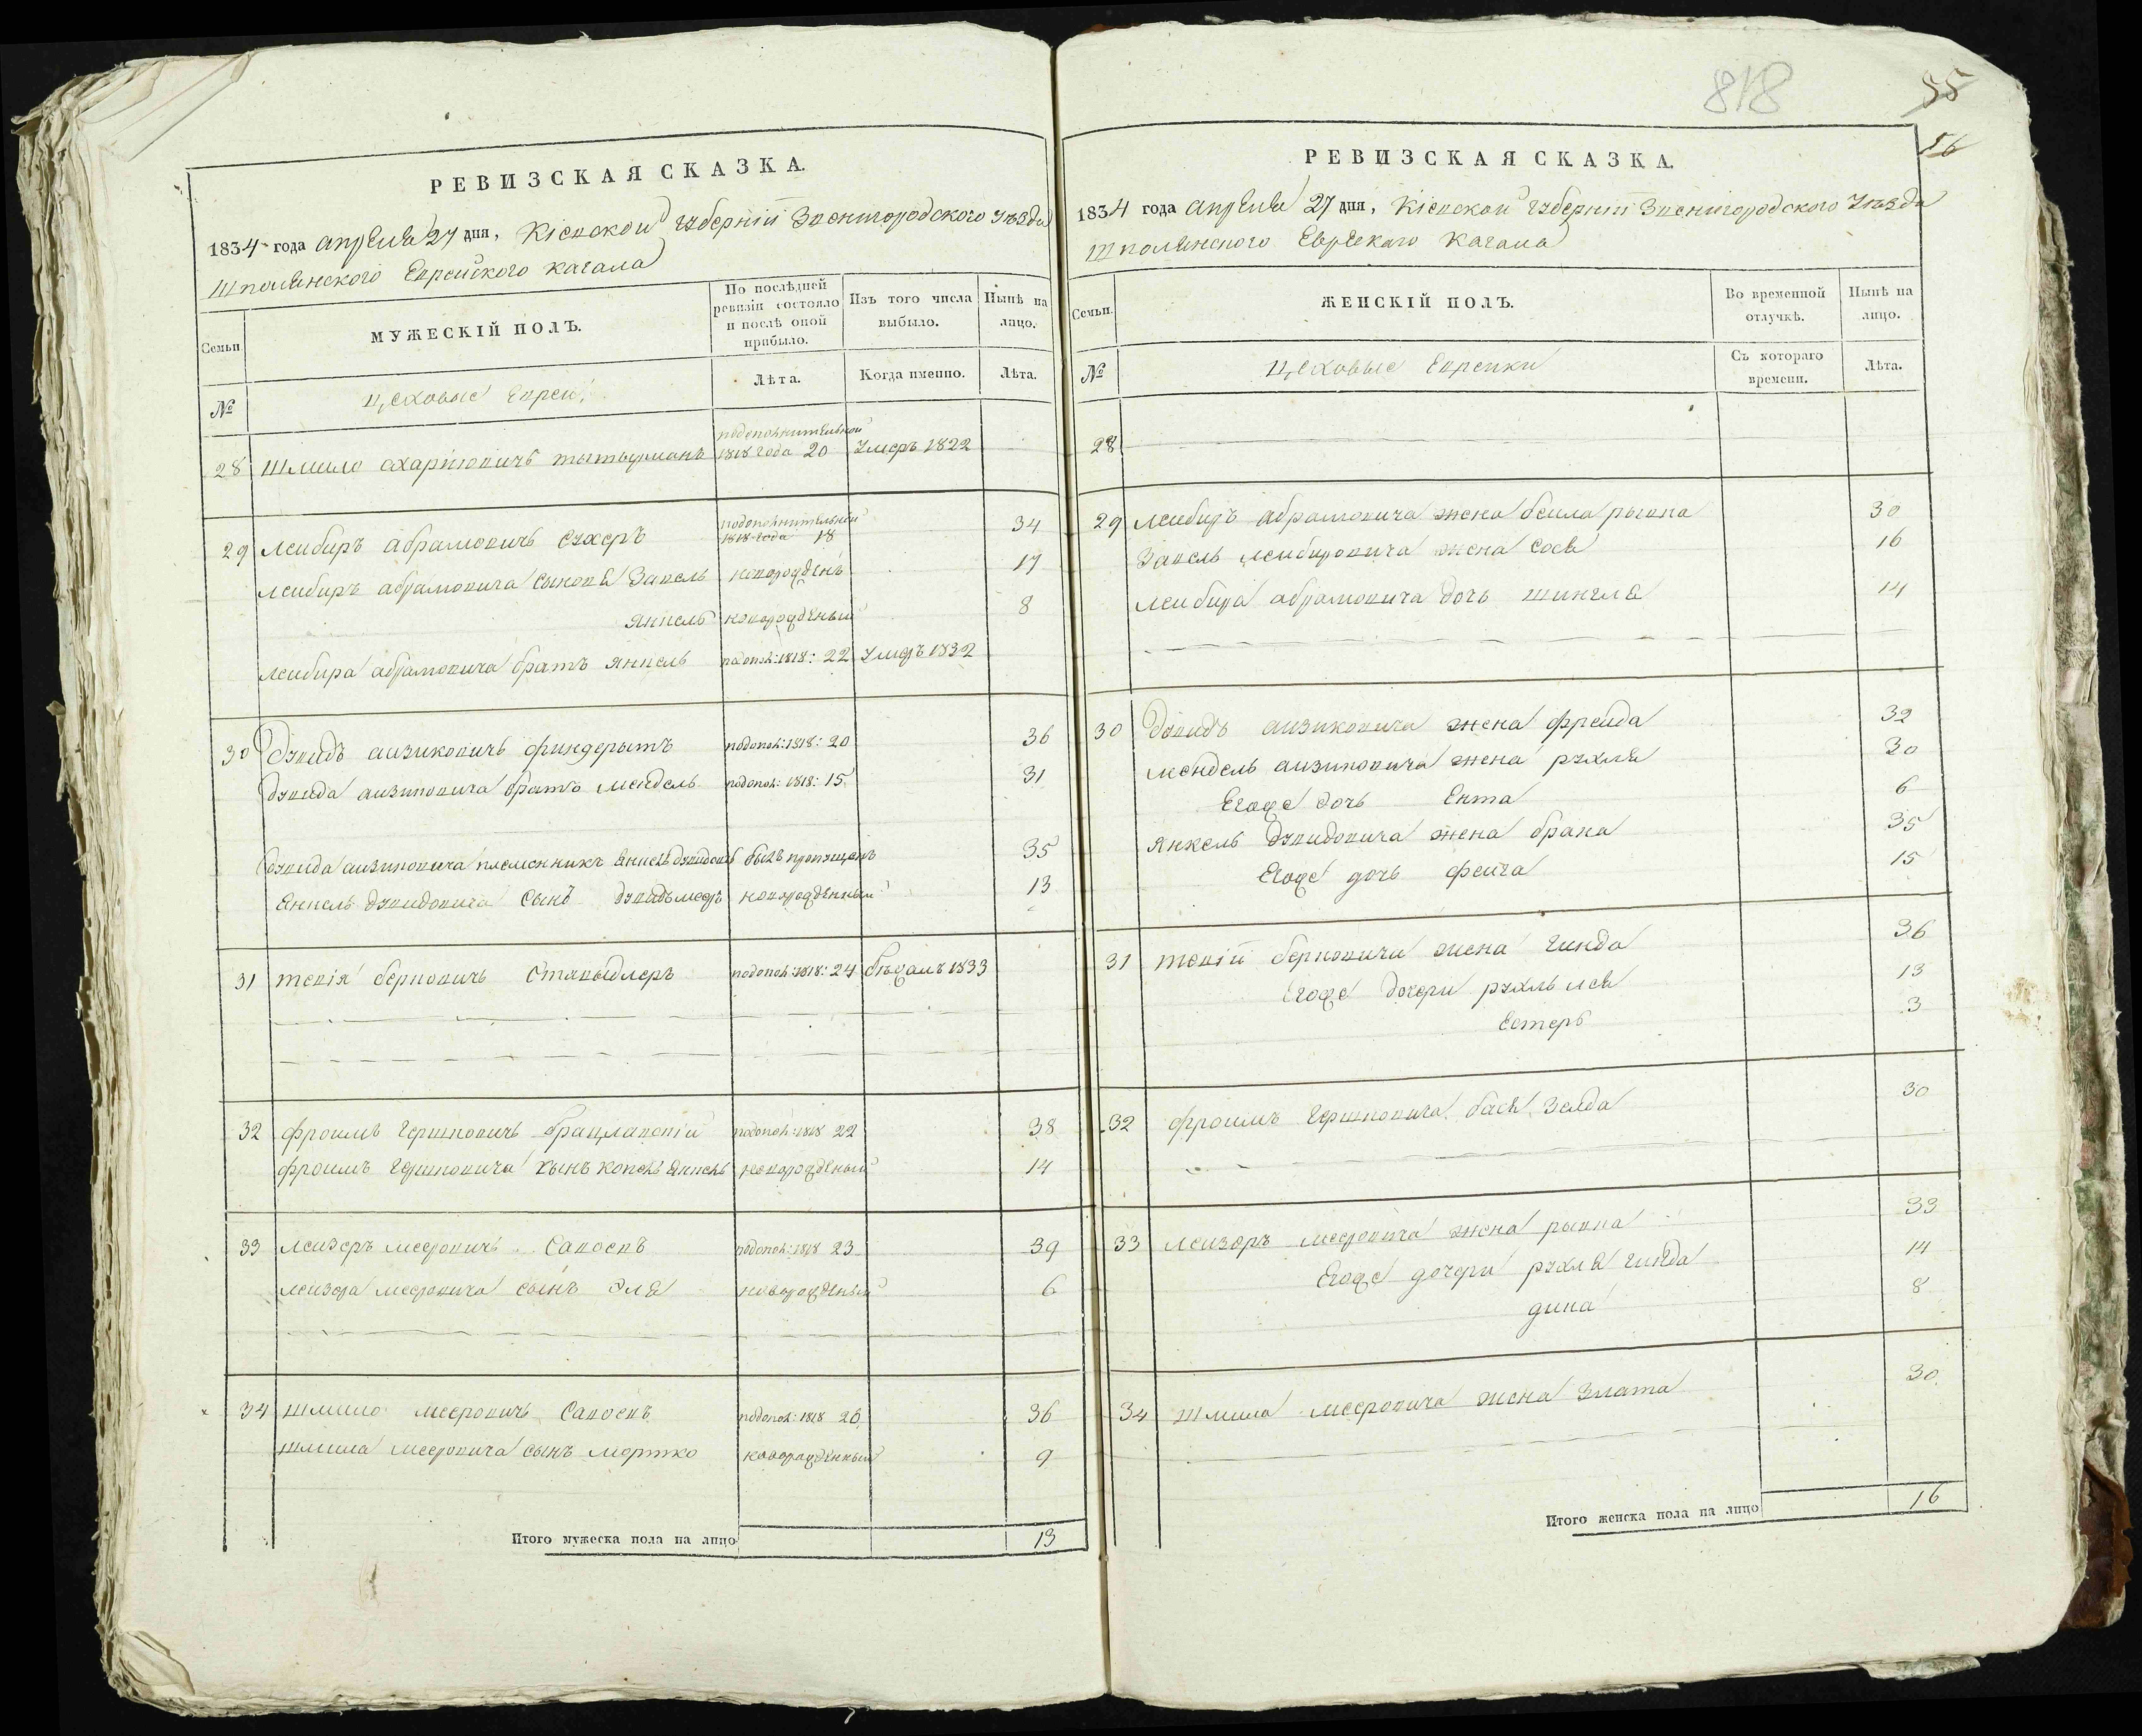 818
55
56
РЕВИЗСКАЯ СКАЗКА.
1834 года апреля 27 дня, Кіевской губерніи Звенигородского уѣзда
Шполянского Еврейского кагала
Семьи.
МУЖЕСКІЙ ПОЛЪ.
По послѣдней ревизіи состояло и послѣ оной прибыло.
Изъ того числа выбыло.
Нынѣ на лицо.
№
Цеховые Евреи.
Лѣта.
Когда именно.
Лѣта.
подополнительной
28 Шмило 1818 года 20 Умеръ 1822
подополнительной
29 Лейбиръ Абрамовичъ Сухеръ 1818 года 18 34
Лейбиръ Абрамовича сыновья Завель новорожденъ 17
Янкель новорожденый 8
Лейбира Абрамовича братъ Янкель подопол: 1818: 22 Умеръ 1832
30 Дувидъ Айзиковичъ подопол: 1818: 20 36
Дувида Айзиковича братъ Мендель подопол: 1818: 15 31
Дувида Айзиковича племенникъ Янкель Дувидовъ былъ пропущенъ 35
Янкель Дувидовича сынъ новорожденный 13
31 Тевія Берковичъ подопол: 1818: 24 бѣжалъ 1833
32 Фроимъ Гершковичъ Брацлавскій подопол: 1818 22 38
Фроимъ Гершковича сынъ Копель Янкель новорожденый 14
33 Лейзеръ Мееровичъ Сапоевъ подопол: 1818 23 39
Лейзера Мееровича сынъ Эля новорожденый 6
34 Шмило Мееровичъ Сапоевъ подопол: 1818 20 36
Шмила Мееровича сынъ Мортко новорожденный 9
Итого мужеска пола на лицо 13
РЕВИЗСКАЯ СКАЗКА.
1834 года апреля 27 дня, Кіевской губерніи Звенигородского уѣзда
Шполянского Еврейскаго кагала
Семьи.
ЖЕНСКІЙ ПОЛЪ.
Во временной отлучкѣ.
Нынѣ на лицо.
№
Цеховые Еврейки
Съ котораго времени.
Лѣта.
28
29 Лейбиръ Абрамовича жена Бейла Рывка 30
Завель Лейбировича жена Сося 16
Лейбира Абрамовича дочь Шингля 14
30 Дувидъ Айзиковича жена Фрейда 32
Мендель Айзиковича жена Рухля 30
Егоже дочь Ента 6
Янкель Дувидовича жена Брана 35
Егоже дочь Фейга 15
31 Тевій Берковича жена Гинда 36
Егоже дочери Рухль Лея 13
Естеръ 3
32 Фроимъ Гершковича Бася Зелда 30
33 Лейзеръ Мееровича жена Рывка 33
Егоже дочери Рухля Гинда 14
Дина 8
34 Шмила Мееровича жена Злата 30
Итого женска пола на лицо 16